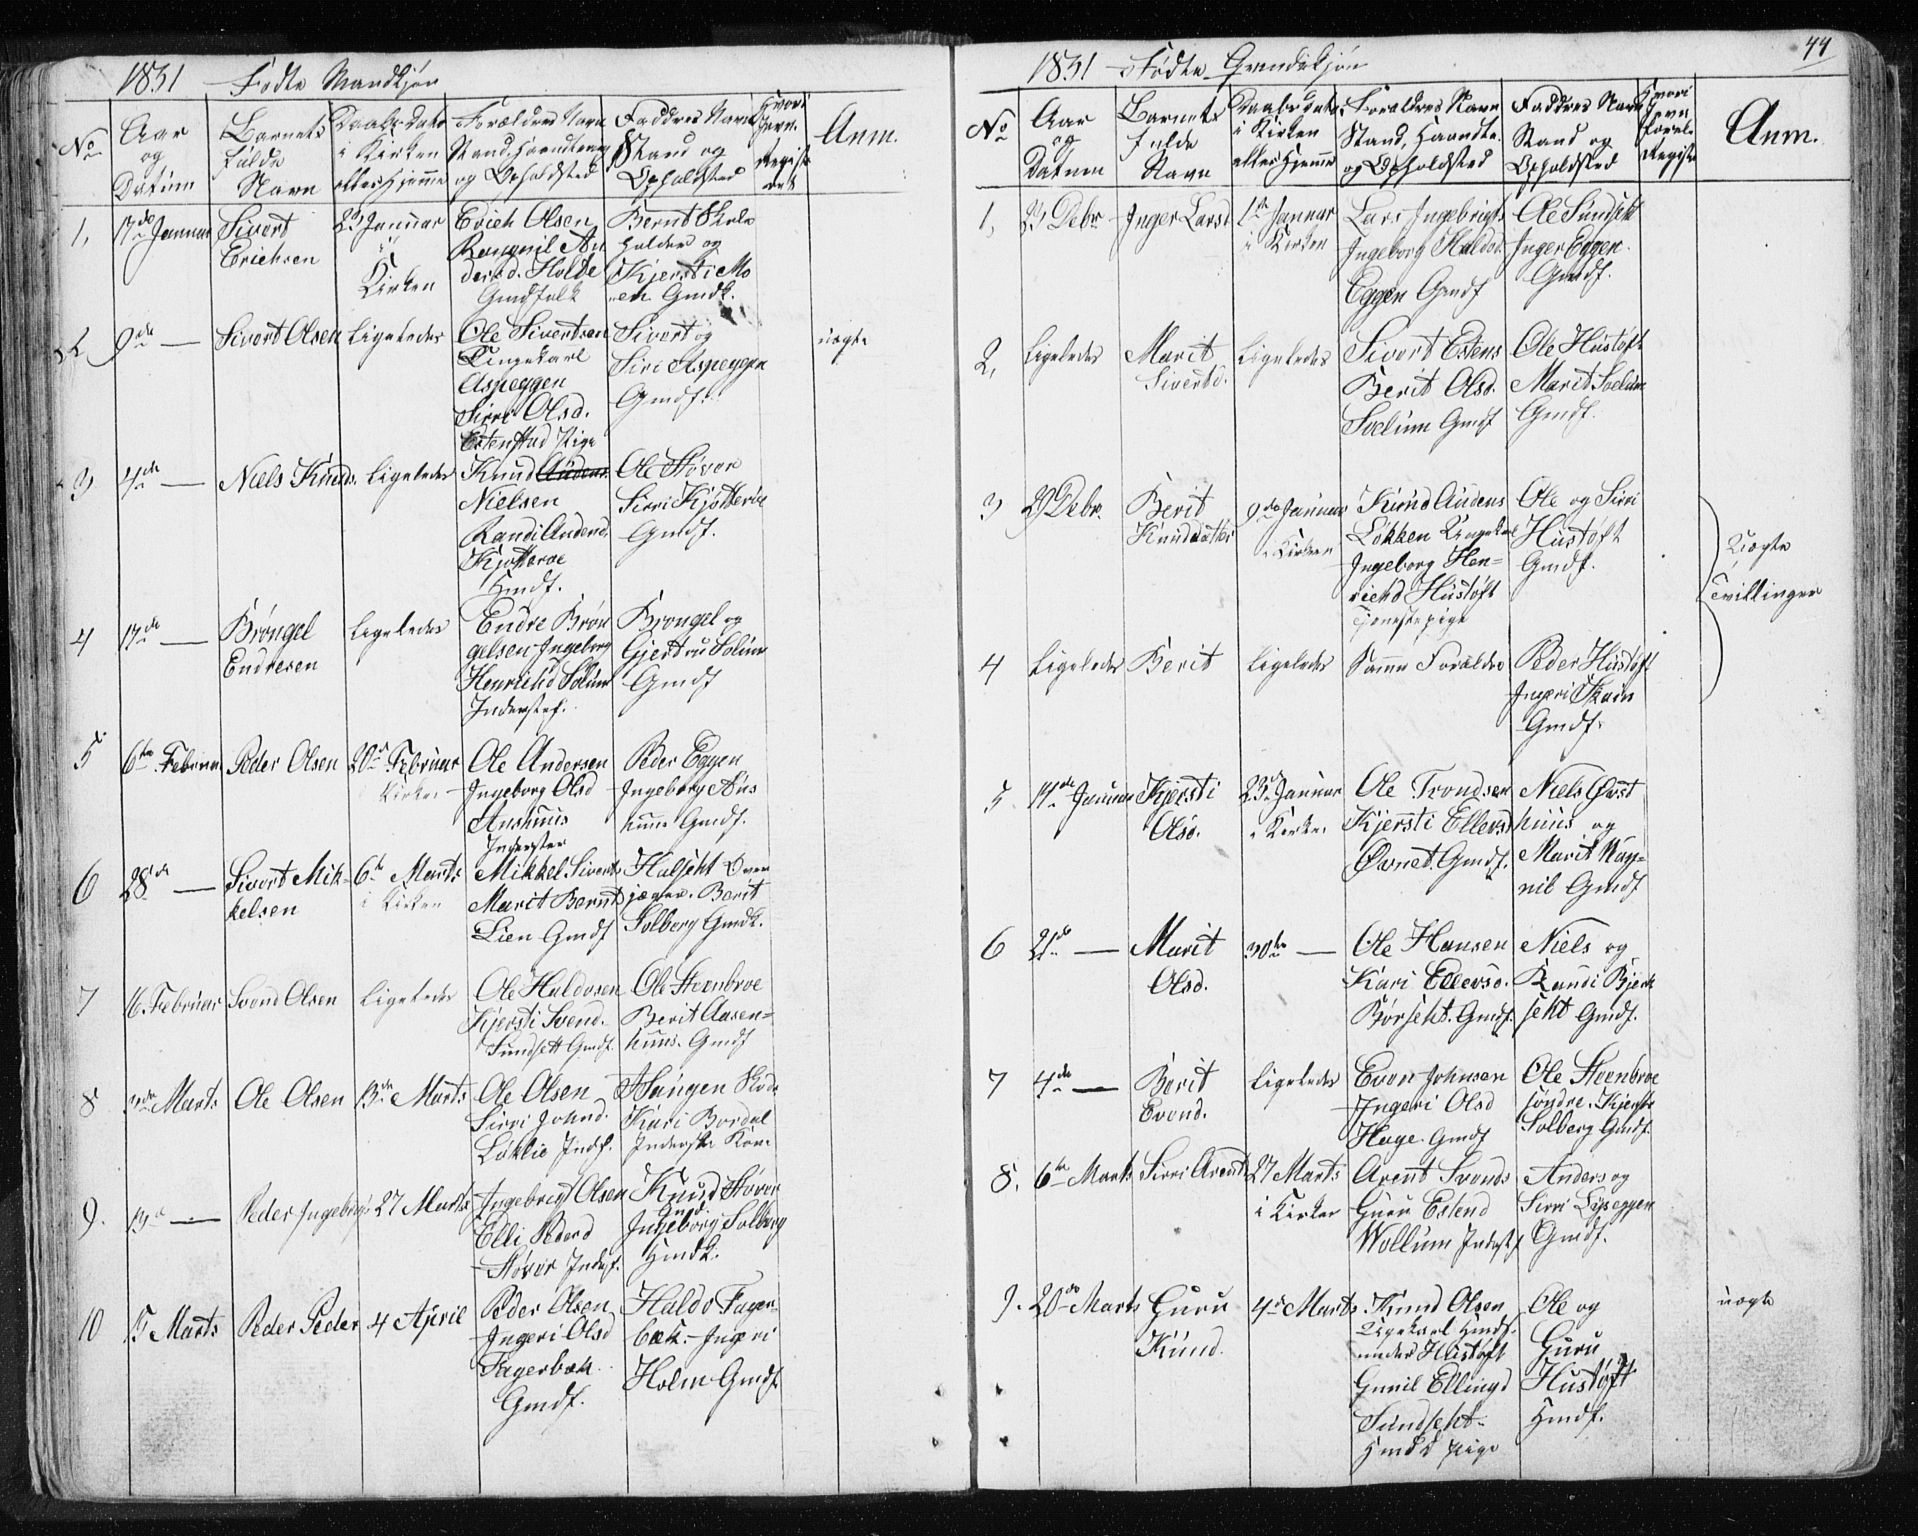 1831 Fødte Mandkjøn
No
Aar og Datum
Barnets fulde Navn
Daabs Dato i Kirken eller Hjemme
Forældres Navn Stand, Haandtering og Opholdsted
Faddres Navn Stand og Opholdsted
Hvori Jevn. Registeret
Anm.
1, 17de Januar
Sivert Erichsen
23 Januar i Kirken
Erich Olsen
Rangnil An
dersd. Holde
Gmdfolk
Bernt Skole
holder og
Kjersti Mo
en Gmdk.
2 9de —
Sivert Olsen
Ligeledes
Ole Sivertsen
Ungekarl
Aspeggen
Sirri Olsd.
Estenstad Pige
Sivert og
Siri Aspeggen
Gmdf.
uægte
3 4de —
Niels Knuds.
Ligeledes
Knud Audens
Nielsen
Randi Audend.
Kjøtterøe
Hmdf.
Ole Støvre
Sirri Kjøtterøe
Gmdf.
4 17de —
Brøngel
Endresen
Ligeledes
Endre Brøn
gelsen Ingeborg
Henrichsd Solum
Inderstf.
Brøngel og
Gjertru Solum
Gmdf
5 6te Februar
Peder Olsen
20de Februar
Kirken
Ole Andersen
Ingeborg Olsd
Aushuus
Inderster
Peder Eggen
Ingeborg Aus
huus Gmdf.
6 28de —
Sivert Mik-
kelsen
6te Marts
i Kirken
Mikkel Siverts
Marit Berntd
Lien Gmdf
Halseht Over
jæger. Berit
Solberg Gmdk.
7 16 Februar
Svend Olsen
Ligeledes
Ole Haldosen
Kjersti Svend.
Sundsett Gmdf.
Ole Steenbroe
Berit Aasen-
huus. Gmdf
8 3de Marts
Ole Olsen
13de Marts
Ole Olsen
Sirri Johnd.
Løklie Indf.
Haugen
Kari Bordal
Inderste Kone
9. 13de —
Peder Ingebrigts
27 Marts
Ingebrigt Olsen
Elli Pederd
Støvre Indstf.
Knud Støvre
Gmd.
Ingeborg Solberg
Hmdk.
10 15 Marts
Peder Peder
4 April
Peder Olsen
Ingeri Olsd
Fagerbæk
Gmdf.
Haldo Fager-
bæk. Ingeri
Holm Gmdf.
44
1831 Fødte Qvindekjøn
No
Aar og Datum
Barnets fulde Navn
Daabs Dato i Kirken eller Hjemme
Forældres Navn Stand, Haandte. og Opholdsted
Faddres Navn Stand og Opholdsted
Hvori Jevn førel. Registr
Anm.
1, 23 Debr
Inger Larsd
1ste Januar
i Kirken
Lars Ingebrigts
Ingeborg Haldosd.
Eggen Gmdf
Ole Sundsett
Inger Eggen.
Gmdf.
2, Ligeledes
Marit
Sivertd.
Ligeledes
Sivert Estens
Berit Olsd.
Svelum Gmdf
Ole Hustøft
Marit Svelum
Gmdf.
3 29 Debr.
Berit
Knudsdatter
9de Januar
i Kirken
Knud Audens
Løkken Ungekarl
Ingeborg Hen-
richsd Hustøft
Tjenestepige
Ole og Sirri
Hustøft
Gmdf.
Uægte
Tvillinger
4 Ligeledes
Berit
Ligeledes
Samme Forældre
Peder Hustøft
Ingeri Skarn
Gmdf.
5. 14de Januar
Kjersti
Olsd.
23de Januar
i Kirken
Ole Trondsen
Kjersti Ellevsd
Øvnet. Gmdf.
Niels Øvst
huus og
Marit Nay-
nil Gmdf
6 21de —
Marit
Olsd.
30te —
Ole Hansen
Kari Ellevsd.
Børseht. Gmdf.
Niels og
Randi Bjerk
seht Gmdf.
7 4de —
Berit
Evend.
Ligeledes
Even Johnsen
Ingeri Olsd
Hage. Gmdf
Ole Steenbroe
søndre. Kjersti
Solberg Gmdf.
8. 6te Marts
Sirri Arentd
27 Marts
i Kirken
Arent Svends
Guru Estend
Wollum Inderstf
Anders og
Sirri Lyseggen
Gmdf.
9. 20de Marts
Guru
Knud.
4de Marts
Knud Olsen
Ugekarl Hmdf.
under Hustøft
Gunil Ellingsd
Sundseht
Hmdsd pige
Ole og
Guru
Hustøft
Hmdf.
uægte